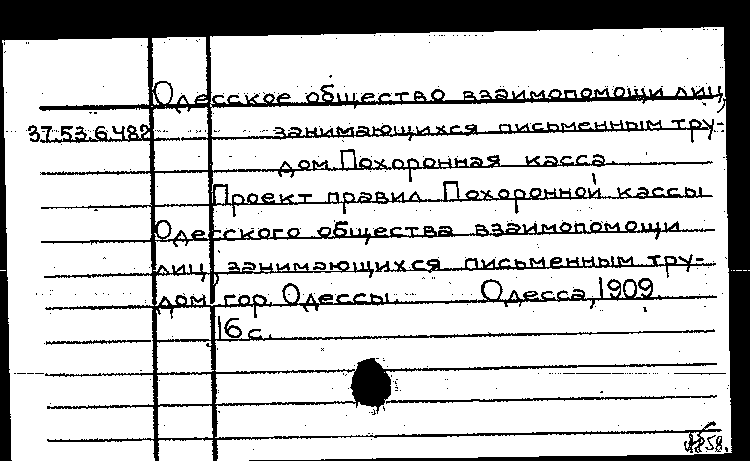 Одесское общество взаимопомощи лиц,
37.53.6.482 занимающихся письменным тру-
дом. Похоронная касса.
Проект правил Похоронной кассы
Одесского общества взаимопомощи
лиц, занимающихся письменным тру-
дом гор. Одессы. Одесса, 1909.
16 с.